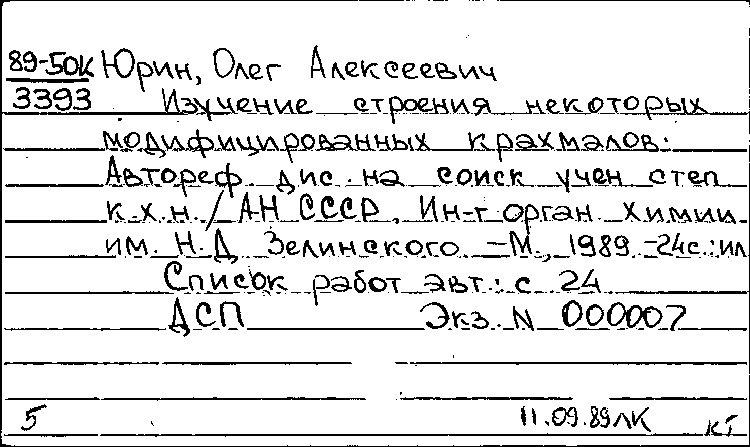 89-50К Юрин, Олег Алексеевич
3393 Изучение строения некоторых
модифицированных крахмалов:
Автореф. дис. на соиск учен степ
к.х.н. / АН СССР, Ин-т орган химии
им. Н.Д Зелинского – М., 1989 – 24с.: ил
Список работ авт.: с 24
ДСП Экз. N 000007
5 11.09.89лк кт